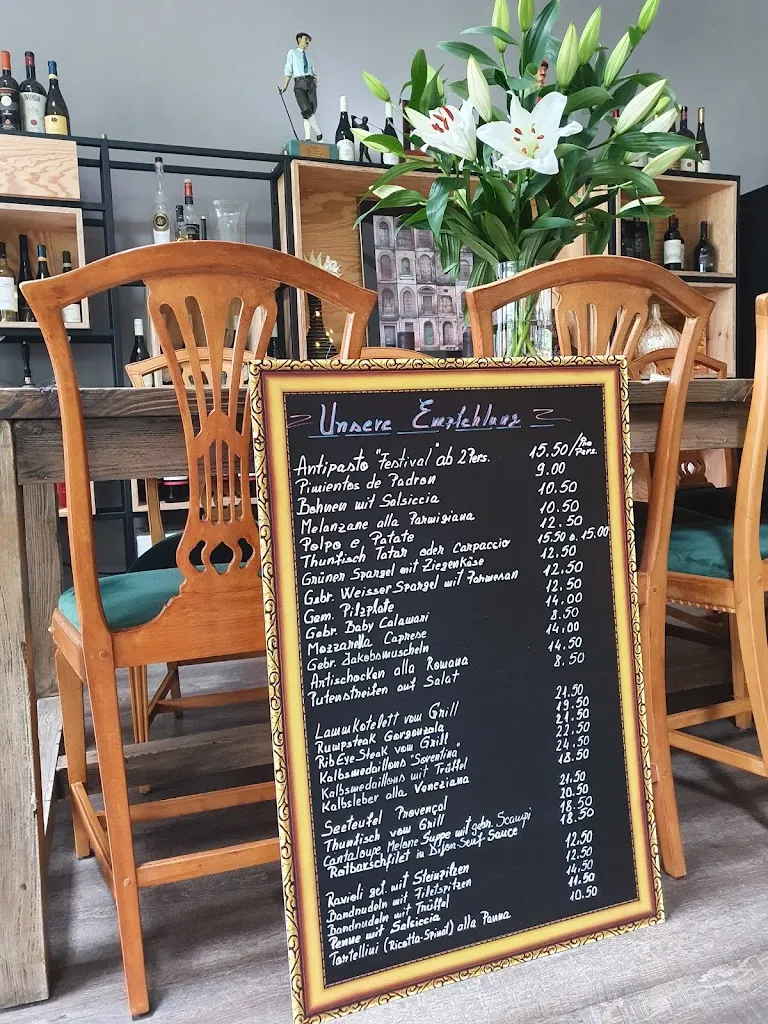 Unsere Empfehlung
Antipasto "Festival" ab 2 Pers. 15.50/Pro Pers.
Pimientos de Padron 9.00
Bohnen mit Salsiccia 10.50
Melanzane alla Parmigiana 10.50
Polpo e Patate 12.50
Thunfisch Tatar oder Carpaccio 15.50 o. 15.00
Grüner Spargel mit Ziegenkäse 12.50
Gebr. Weisser Spargel mit Parmesan 12.50
Gem. Pilzplatte 12.50
Gebr. Baby Calamari 14.00
Mozzarella Caprese 8.50
Gebr. Jakobsmuscheln 14.00
Artischocken alla Romana 14.50
Putenstreifen auf Salat 8.50
Lammkotelett vom Grill 21.50
Rumpsteak Gorgonzola 19.50
Rib Eye Steak vom Grill 21.50
Kalbsmedaillons "Sorentina" 22.50
Kalbsmedaillons mit Trüffel 24.50
Kalbsleber alla Veneziana 18.50
Seeteufel Provençal 21.50
Thunfisch vom Grill 20.50
Cantaloupe Melone Suppe mit gebr. Scampi 18.50
Rotbarschfilet in Dijon-Senf-Sauce 18.50
Ravioli gef. mit Steinpilzen 12.50
Bandnudeln mit Filetspitzen 12.50
Bandnudeln mit Trüffel 14.50
Penne mit Salsiccia 11.50
Tortellini (Ricotta-Spinat) alla Panna 10.50